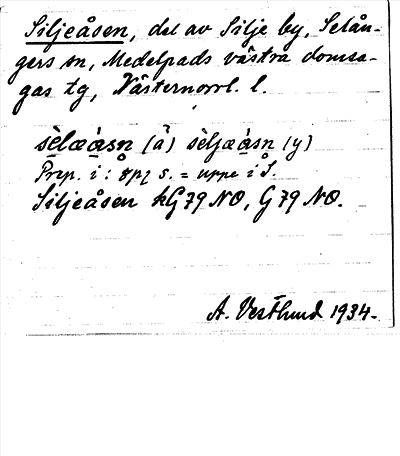 Siljeåsen, del av Silje by, Selån-
gers sn, Medelpads västra domsa-
gas tg, Västernorrl. l.
sèlæåsn (ä) sèljæåsn (y)
Prep. i: s. = uppe i S.
Siljeåsen kG79 NO, G79 NO.
A. Vestlund 1934.